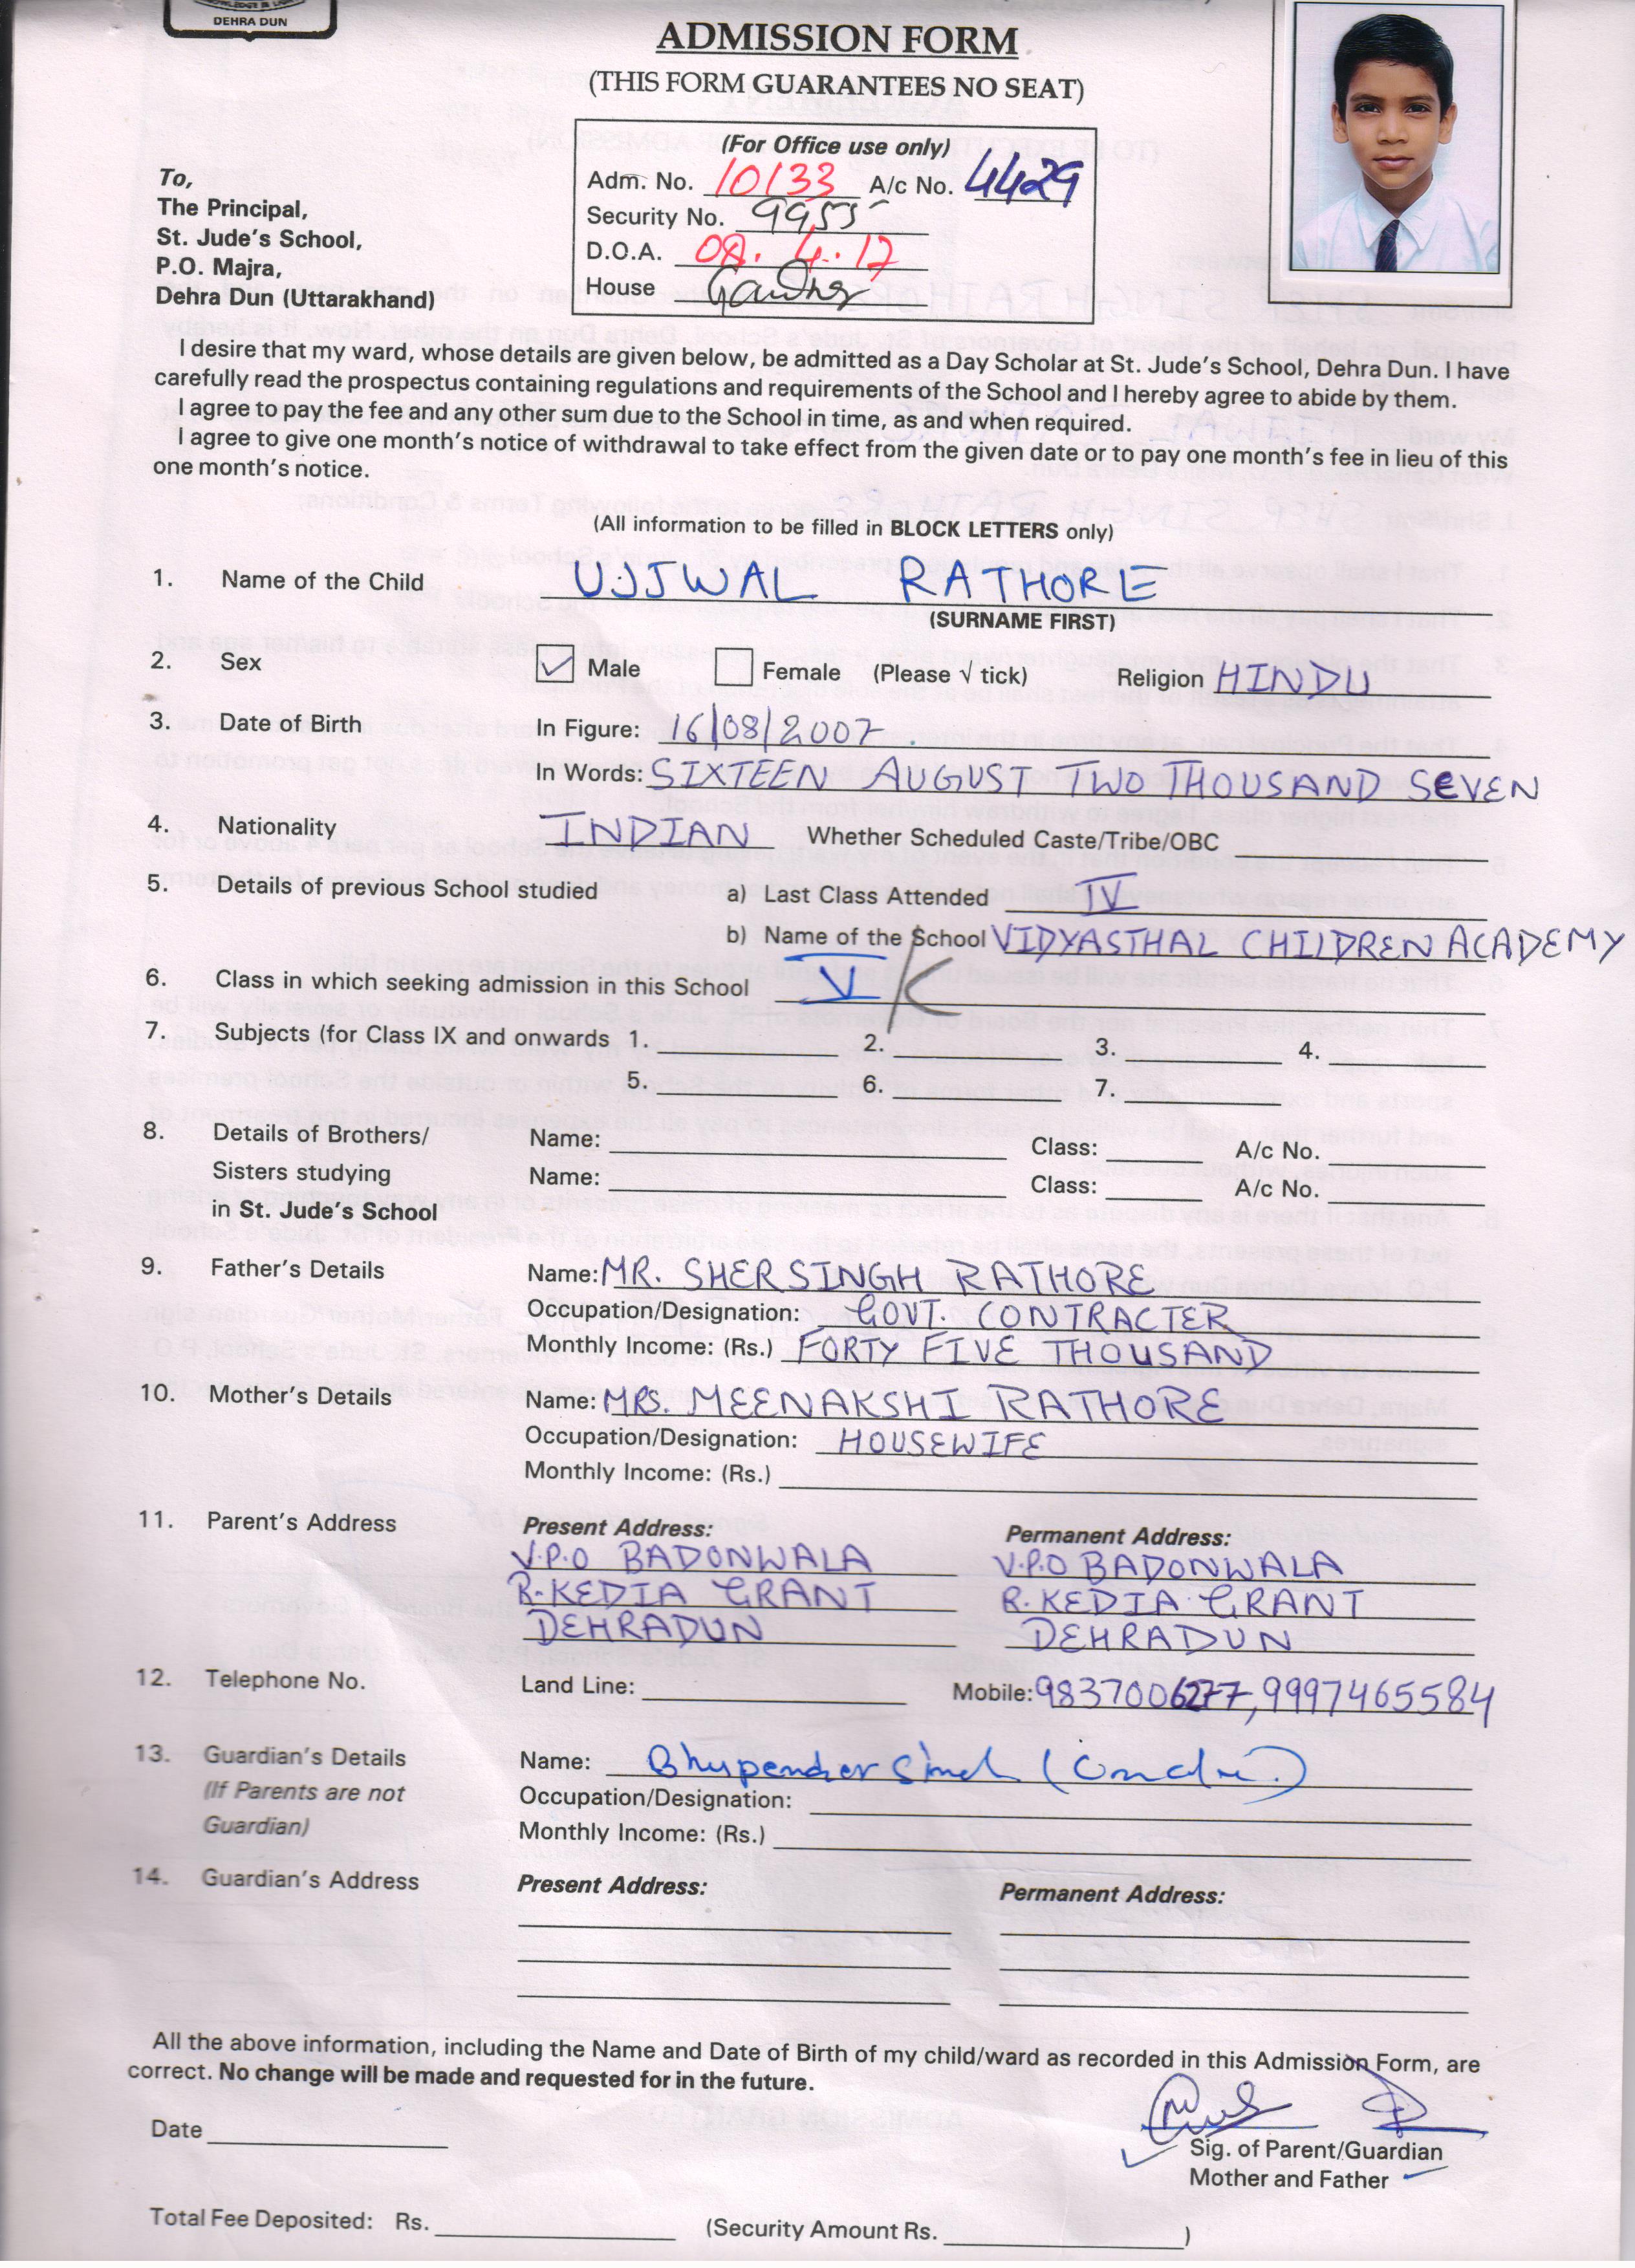 DEHRA DUN
ADMISSION FORM
(THIS FORM GUARANTEES NO SEAT)
(For Office use only)
Adm. No. 10133 A/c No. 4429
Security No. 9955
D.O.A. 08. 4. 17
House Gandhi
To,
The Principal,
St. Jude's School,
P.O. Majra,
Dehra Dun (Uttarakhand)
I desire that my ward, whose details are given below, be admitted as a Day Scholar at St. Jude's School, Dehra Dun. I have
carefully read the prospectus containing regulations and requirements of the School and I hereby agree to abide by them.
I agree to pay the fee and any other sum due to the School in time, as and when required.
I agree to give one month's notice of withdrawal to take effect from the given date or to pay one month's fee in lieu of this
one month's notice.
(All information to be filled in BLOCK LETTERS only)
1. Name of the Child UJJWAL RATHORE
(SURNAME FIRST)
2. Sex Male Female (Please √ tick) Religion HINDU
3. Date of Birth In Figure: 16/08/2007
In Words: SIXTEEN AUGUST TWO THOUSAND SEVEN
4. Nationality INDIAN Whether Scheduled Caste/Tribe/OBC
5. Details of previous School studied a) Last Class Attended IV
b) Name of the School VIDYASTHAL CHILDREN ACADEMY
6. Class in which seeking admission in this School V K
7. Subjects (for Class IX and onwards 1. 2. 3. 4.
5. 6. 7.
8. Details of Brothers/ Name: Class: A/c No.
Sisters studying Name: Class: A/c No.
in St. Jude's School
9. Father's Details Name: MR. SHER SINGH RATHORE
Occupation/Designation: GOVT. CONTRACTER
Monthly Income: (Rs.) FORTY FIVE THOUSAND
10. Mother's Details Name: MRS. MEENAKSHI RATHORE
Occupation/Designation: HOUSEWIFE
Monthly Income: (Rs.)
11. Parent's Address Present Address: Permanent Address:
V.P.O BADONWALA V.P.O BADONWALA
R.KEDIA GRANT R.KEDIA GRANT
DEHRADUN DEHRADUN
12. Telephone No. Land Line: Mobile: 9837006277, 9997465584
13. Guardian's Details Name: Bhupender
(If Parents are not Occupation/Designation:
Guardian) Monthly Income: (Rs.)
14. Guardian's Address Present Address: Permanent Address:
All the above information, including the Name and Date of Birth of my child/ward as recorded in this Admission Form, are
correct. No change will be made and requested for in the future.
Date
Sig. of Parent/Guardian
Mother and Father
Total Fee Deposited: Rs. (Security Amount Rs. )